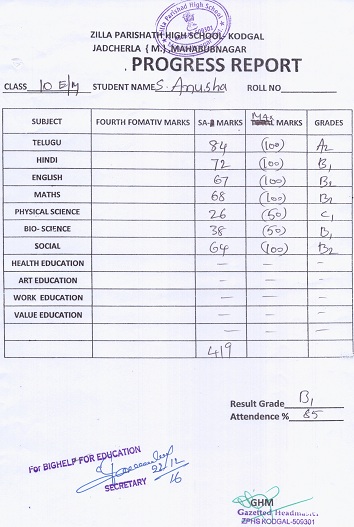 Zilla Parishad High School
ZILLA PARISHATH HIGH SCHOOL, KODGAL
JADCHERLA (M.), MAHABUBNAGAR
PROGRESS REPORT
CLASS 10 E/M STUDENT NAME S. Anusha ROLL NO
SUBJECT FOURTH FOMATIV MARKS SA- MARKS Max MARKS GRADES
TELUGU 84 (100) A2
HINDI 72 (100) B1
ENGLISH 67 (100) B2
MATHS 68 (100) B2
PHYSICAL SCIENCE 26 (50) C1
BIO- SCIENCE 38 (50) B1
SOCIAL 64 (100) B2
HEALTH EDUCATION — — —
ART EDUCATION — — —
WORK EDUCATION — — —
VALUE EDUCATION — — —
— — —
419
Result Grade B1
Attendence % 85
For BIGHELP FOR EDUCATION
22/12
16
SECRETARY
GHM
Gazetted Headmaster
ZPHS KODGAL-509301